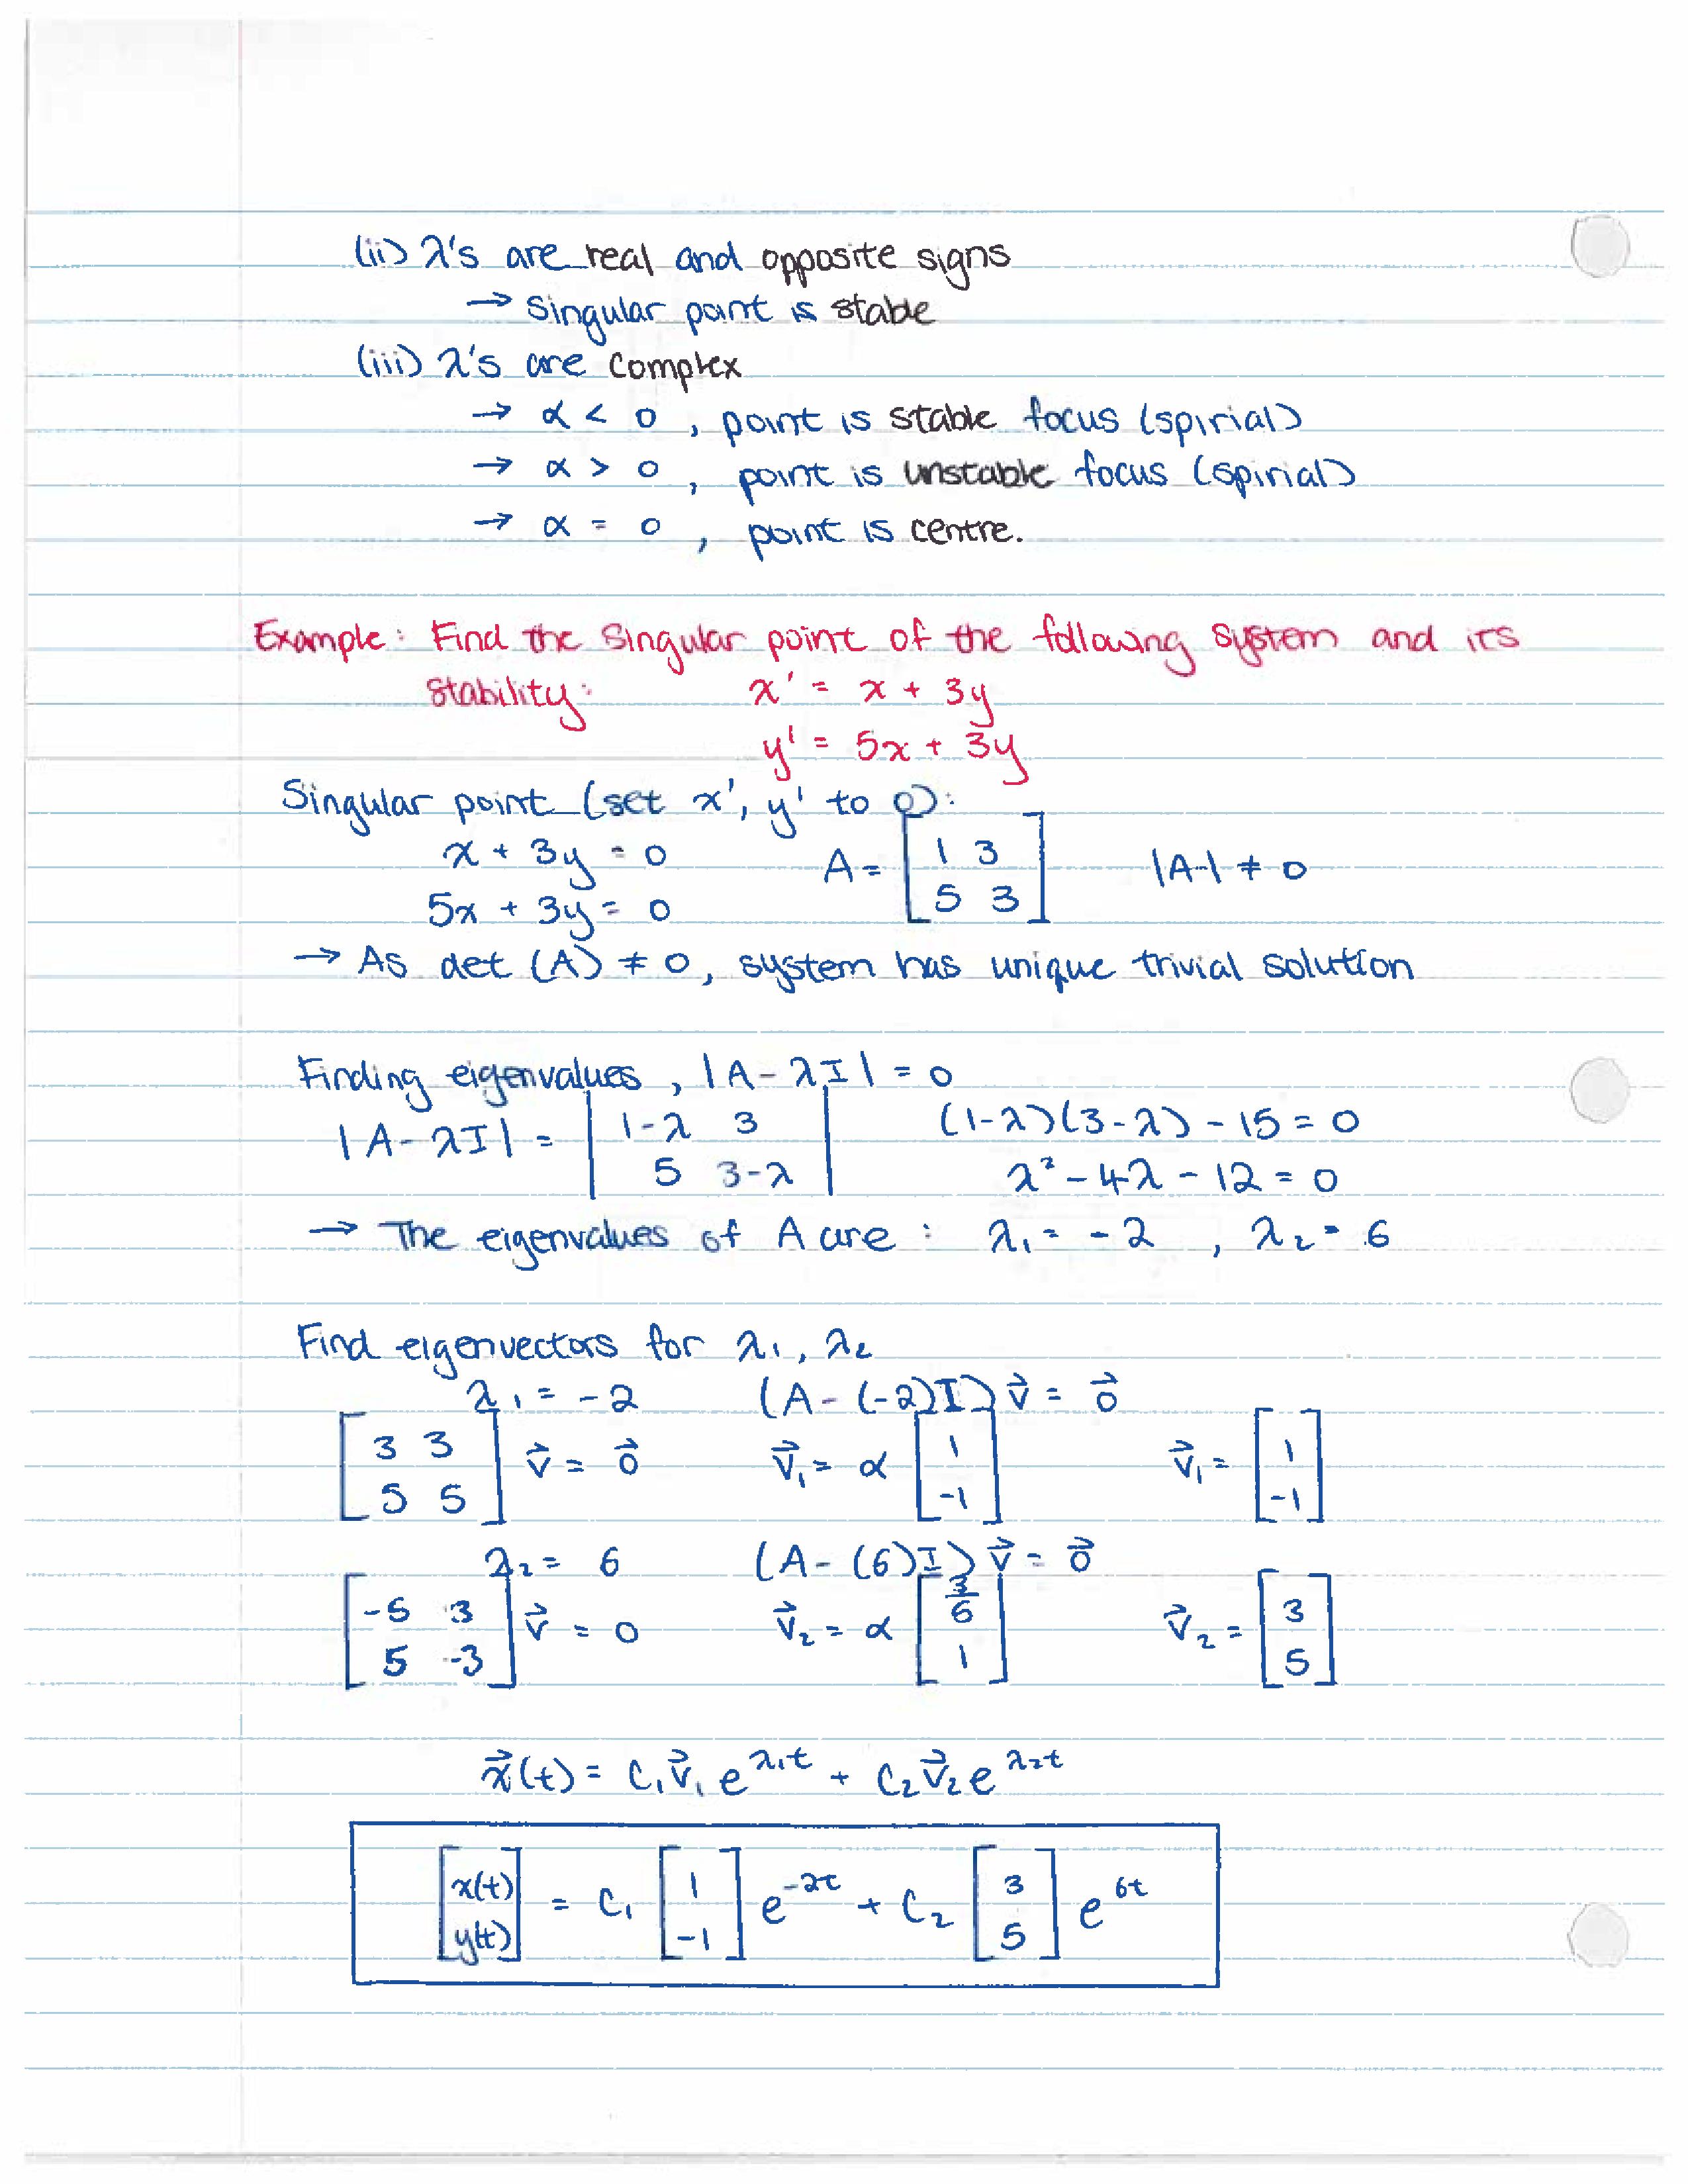 (ii) λ's are real and opposite signs
→ Singular point is stable
(iii) λ's are complex
→ α < 0 , point is stable focus (spirial)
→ α > 0 , point is unstable focus (spirial)
→ α = 0 , point is centre.
Example: Find the singular point of the following system and its
stability: x' = x + 3y
y' = 5x + 3y
Singular point (set x', y' to 0):
x + 3y = 0
5x + 3y = 0
A = [1 3; 5 3] |A| ≠ 0
→ As det (A) ≠ 0, system has unique trivial solution
Finding eigenvalues, |A - λI| = 0
|A - λI| = |1-λ 3; 5 3-λ| (1-λ)(3-λ) - 15 = 0
λ² - 4λ - 12 = 0
→ The eigenvalues of A are : λ₁ = -2 , λ₂ = 6
Find eigenvectors for λ₁, λ₂
λ₁ = -2 (A - (-2)I) v⃗ = 0⃗
[3 3; 5 5] v⃗ = 0⃗ v⃗₁ = α [1; -1] v⃗₁ = [1; -1]
λ₂ = 6 (A - (6)I) v⃗ = 0⃗
[-5 3; 5 -3] v⃗ = 0 v⃗₂ = α [3/5; 1] v⃗₂ = [3; 5]
x⃗(t) = C₁v⃗₁ e^λ₁t + C₂v⃗₂ e^λ₂t
[x(t); y(t)] = C₁ [1; -1] e^-2t + C₂ [3; 5] e^6t